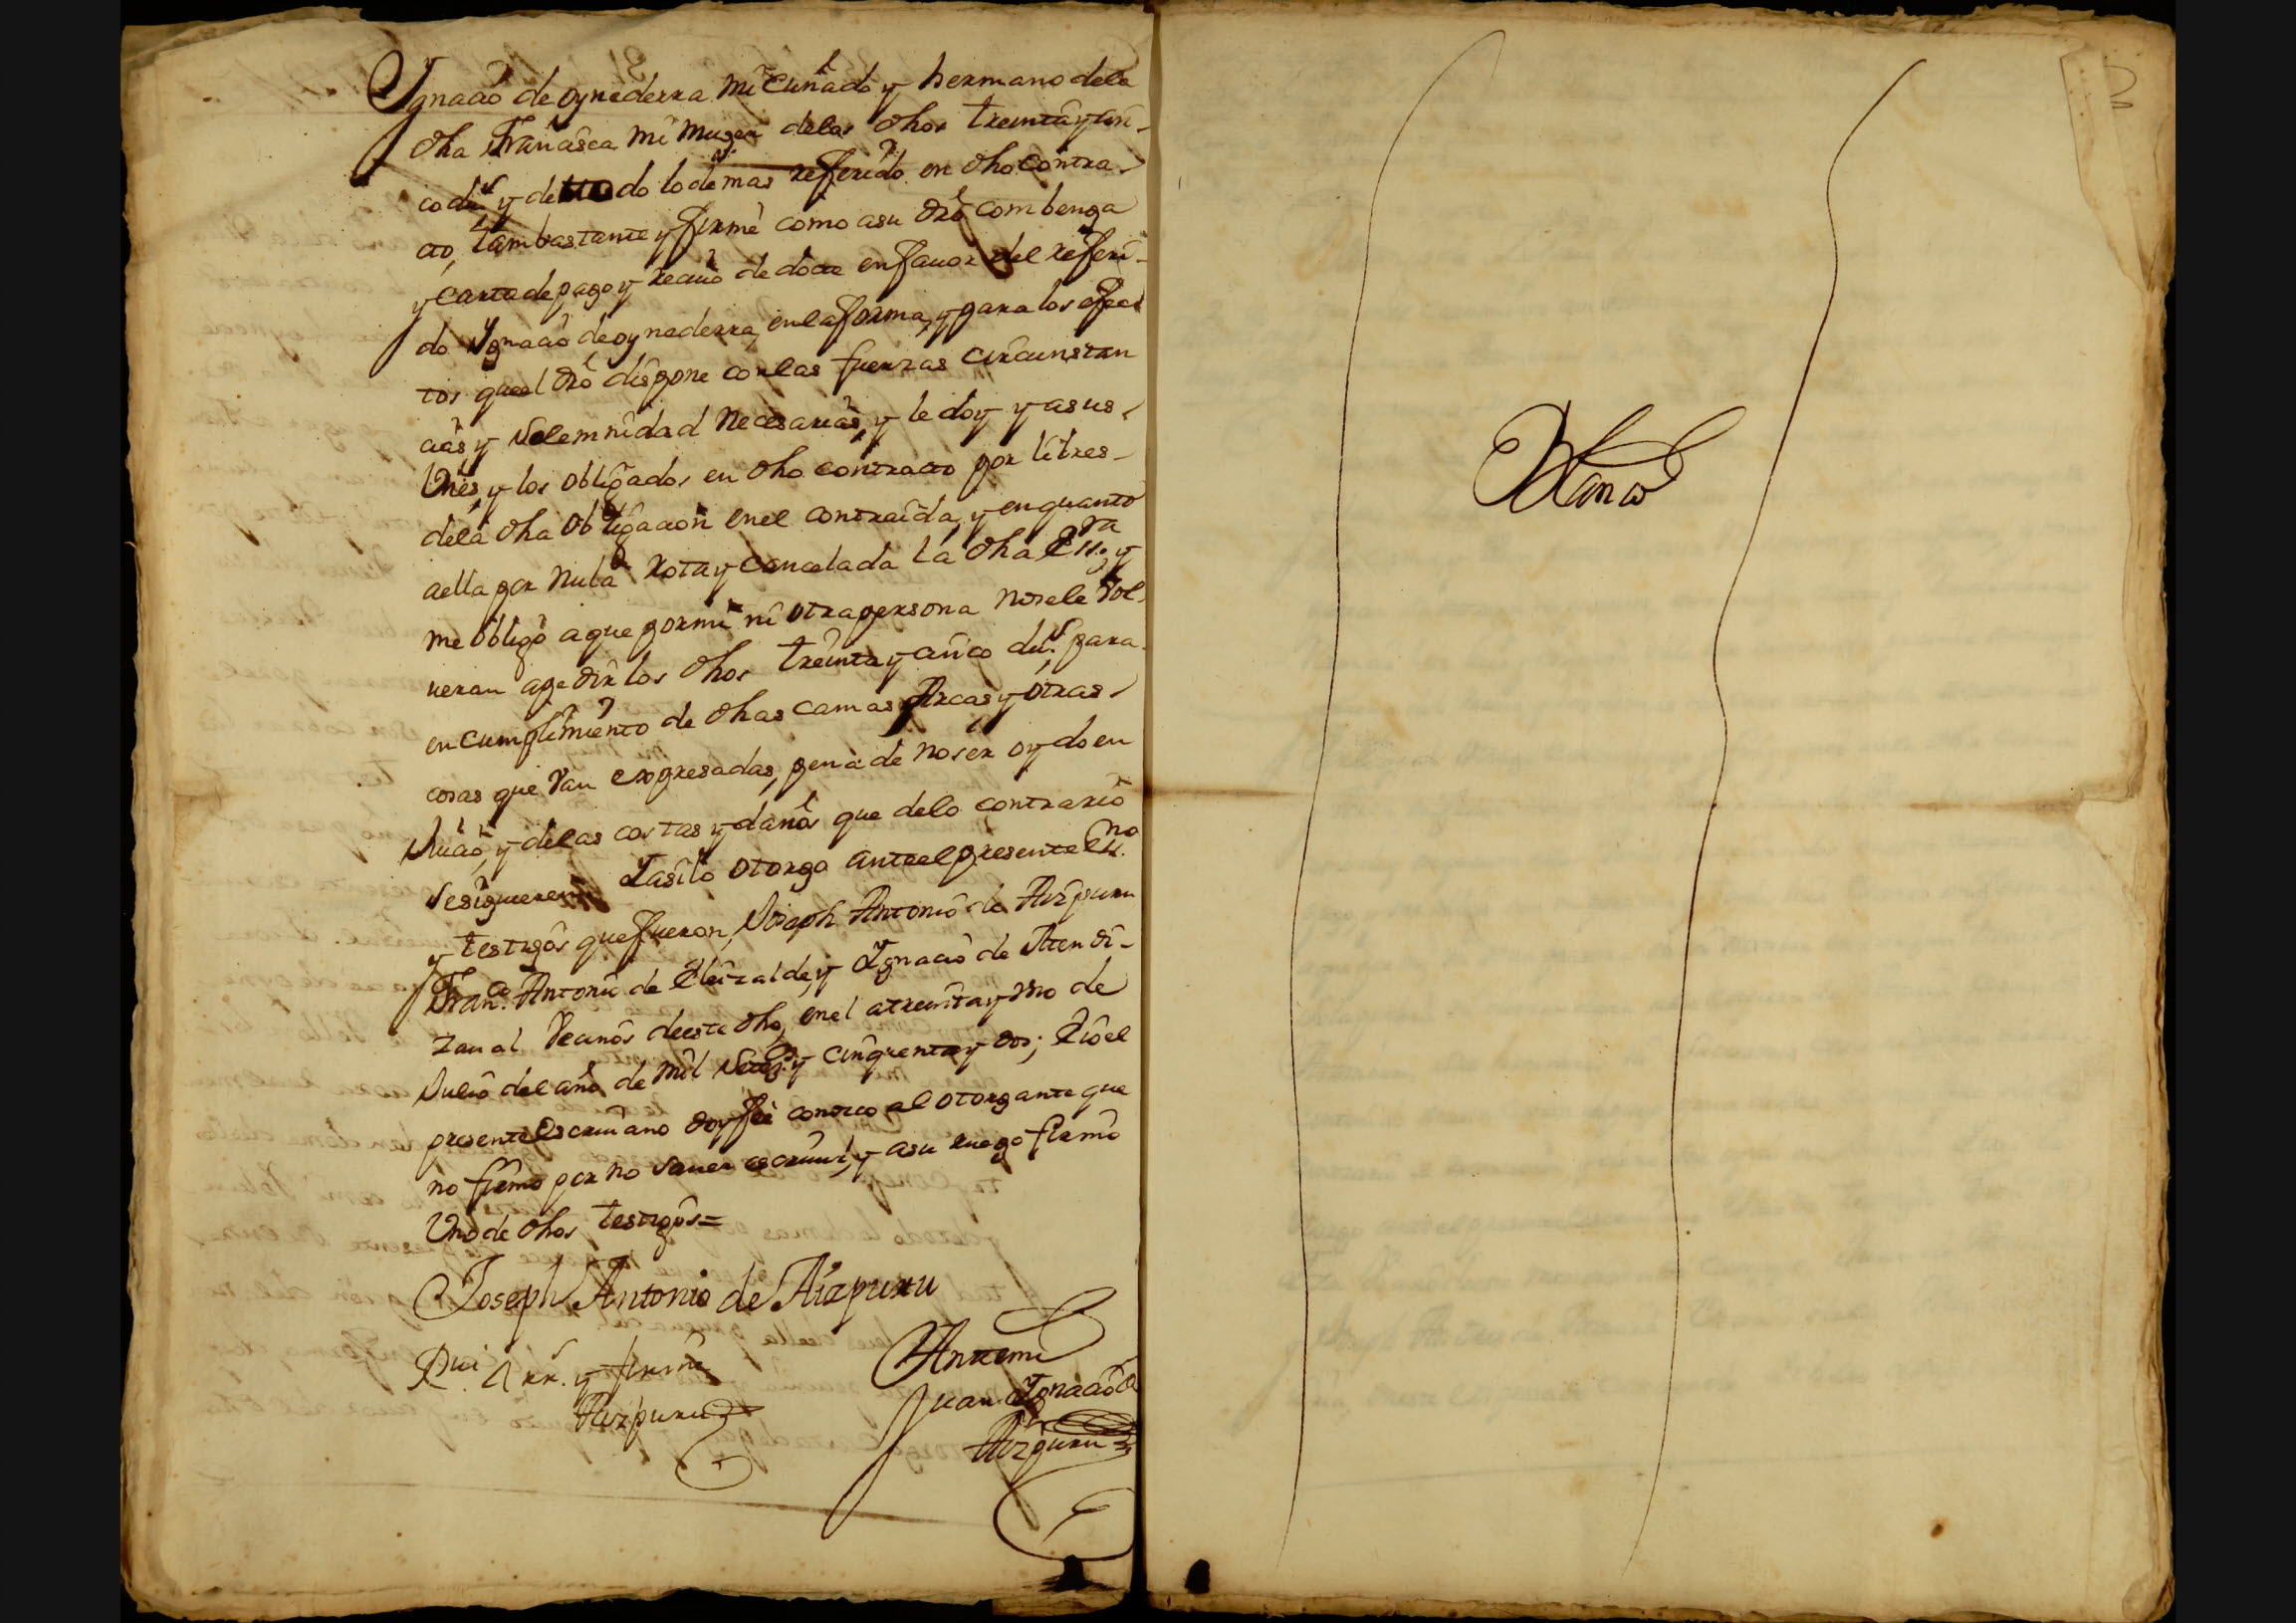 Ygnaçio de oynederra mi Cuñado y hermano dela
dha Françisca mi Muger delos dhos treinta y çin-
co du.s y de todo lo demas refferido en dho contra-
cto, tam bastante y firme como a su dro combenga
y carta de pago y reciuo de docte en fauor del referi-
do Ygnaçio de oynederra, en la forma, y para los efec-
tos que el dro dispone con las fuerzas circunstan
cias y solemnidad necesarias, y le doy y a sus
vnes, y los obligados en dho contracto por litres-
dela dha obligacion en el contraida, y en quanto
a ella por nula rota y cancelada la dha Ess.ra y
me obligo a que por mi ni otra persona no se le vol-
ueran a pedir los dhos treinta y cinco du.s para
en cumplimiento de dhas camas Arcas y otras
cosas que van expresadas, pena de no ser oydo en
Juiçio, y delas costas y daños que delo contrario
se siguieren Y asi lo otorgo ante el presente Ess.no
y testigos que fueron, Joseph Antonio de Aizpuru
Fran.co Antonio de Eleizalde, y Ygnacio de Aten di-
zaual Vecinos de este dho, en el a treinta y vno de
Julio del año de mil setez.s y cinquenta y dos; E io el
presente Escriuano doy fee conozco al otorgante que
no firmo por no sauer escriuir, y a su ruego firmo
Vno de dhos testigos =
Joseph Antonio de Aizpuru
Antemi
Juan Ygnaçio de
Aizpuru
y firme
Aizpuru
Blanco